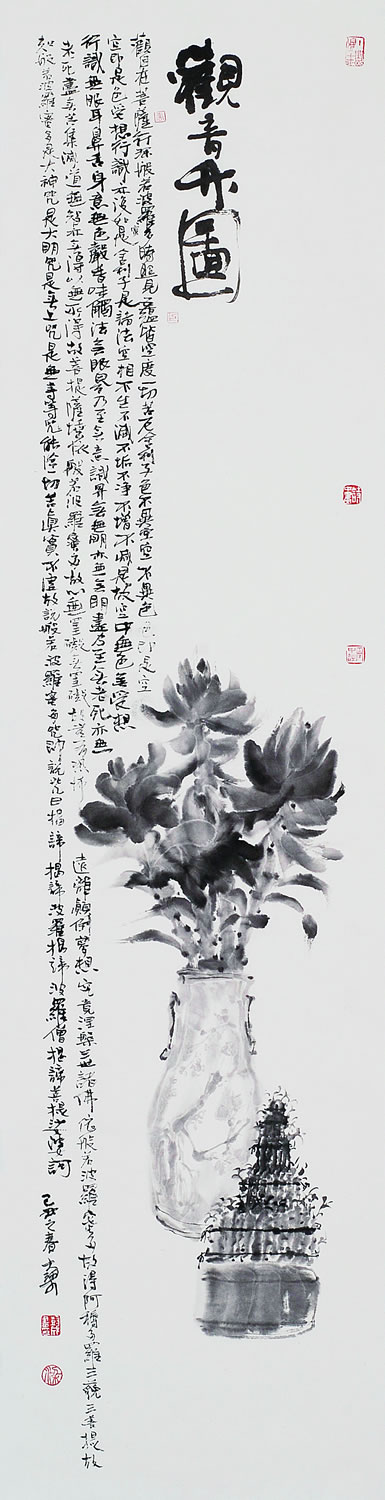 觀音圖
觀自在菩薩行深般若波羅多時照見五蘊皆空度一切苦厄舍利子色不異空空不異色色即是空
空即是色受想行識亦復如是舍利子是諸法空相不生不滅不垢不淨不增不減是故空中無色無受想
行識無眼耳鼻舌身意無色聲香味觸法無眼界乃至無意識界無無明亦無無明盡乃至無老死亦無
老死盡無苦集滅道無智亦無得以無所得故菩提薩埵依般若波羅蜜多故心無罣礙無罣礙故無有恐怖遠離顛倒夢想究竟涅槃三世諸佛依般若波羅蜜多故得阿耨多羅三藐三菩提故
知般若波羅蜜多是大神咒是大明咒是無上咒是無等等咒能除一切苦真實不虛故說般若波羅蜜多咒即說咒曰揭諦揭諦波羅揭諦波羅僧揭諦菩提娑婆訶
己丑之春